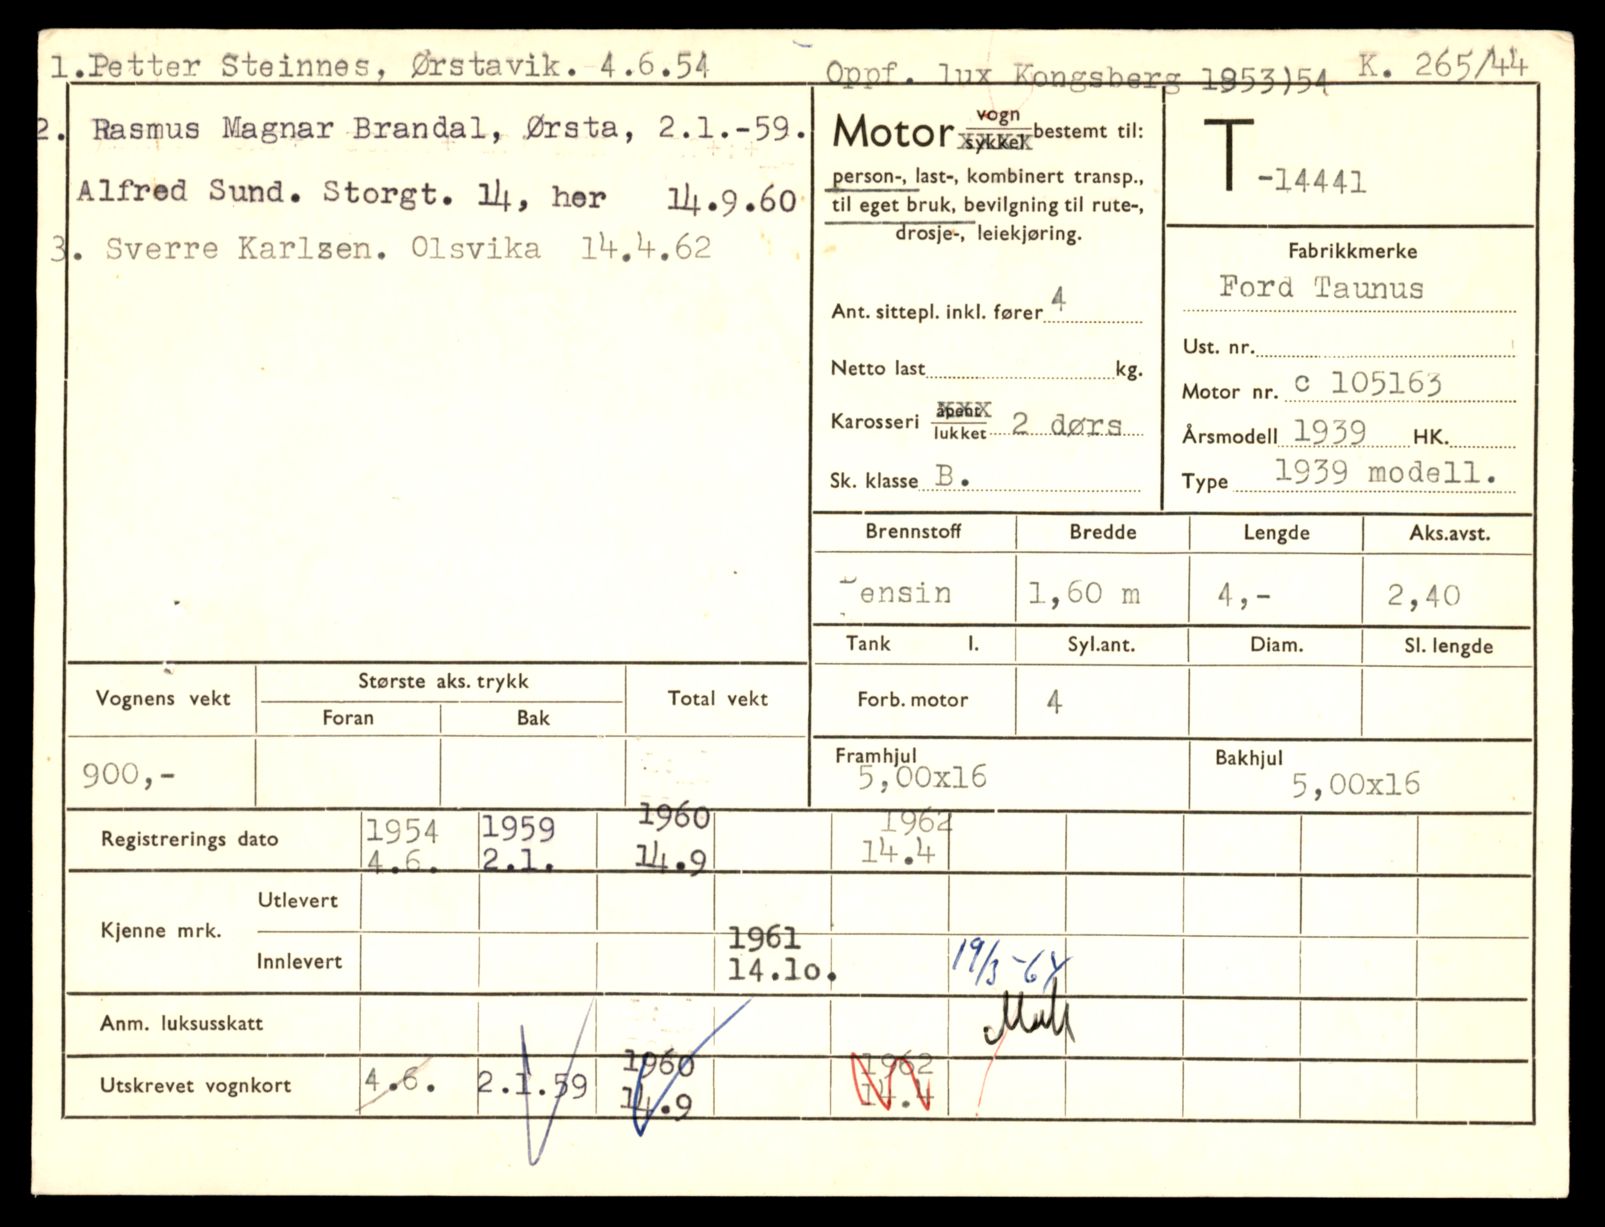 1.Petter Steinnes, Ørstavik. 4.6.54
Oppf. lux Kongsberg 1953)54 K. 265/44
2. Rasmus Magnar Brandal, Ørsta, 2.1.-59.
Alfred Sund. Storgt. 14, her 14.9.60
3. Sverre Karlsen. Olsvika 14.4.62
Motor vogn sykkel bestemt til:
person-, last-, kombinert transp.,
til eget bruk, bevilgning til rute-,
drosje-, leiekjøring.
Ant. sittepl. inkl. fører 4
Netto last kg.
Karosseri åpent lukket 2 dørs
Sk. klasse B.
T -14441
Fabrikkmerke
Ford Taunus
Ust. nr.
Motor nr. c 105163
Årsmodell 1939 HK.
Type 1939 modell.
Brennstoff Bredde Lengde Aks.avst.
Bensin 1,60 m 4,- 2,40
Tank l. Syl.ant. Diam. Sl. lengde
Forb. motor 4
Framhjul Bakhjul
5,00x16 5,00x16
Vognens vekt Største aks. trykk Total vekt
Foran Bak
900,-
Registrerings dato 1954 4.6. 1959 2.1. 1960 14.9 1962 14.4
Kjenne mrk. Utlevert
Innlevert 1961 14.1o. 19/3-64
Anm. luksusskatt
Utskrevet vognkort 4.6. 2.1.59 1960 14.9 1962 14.4